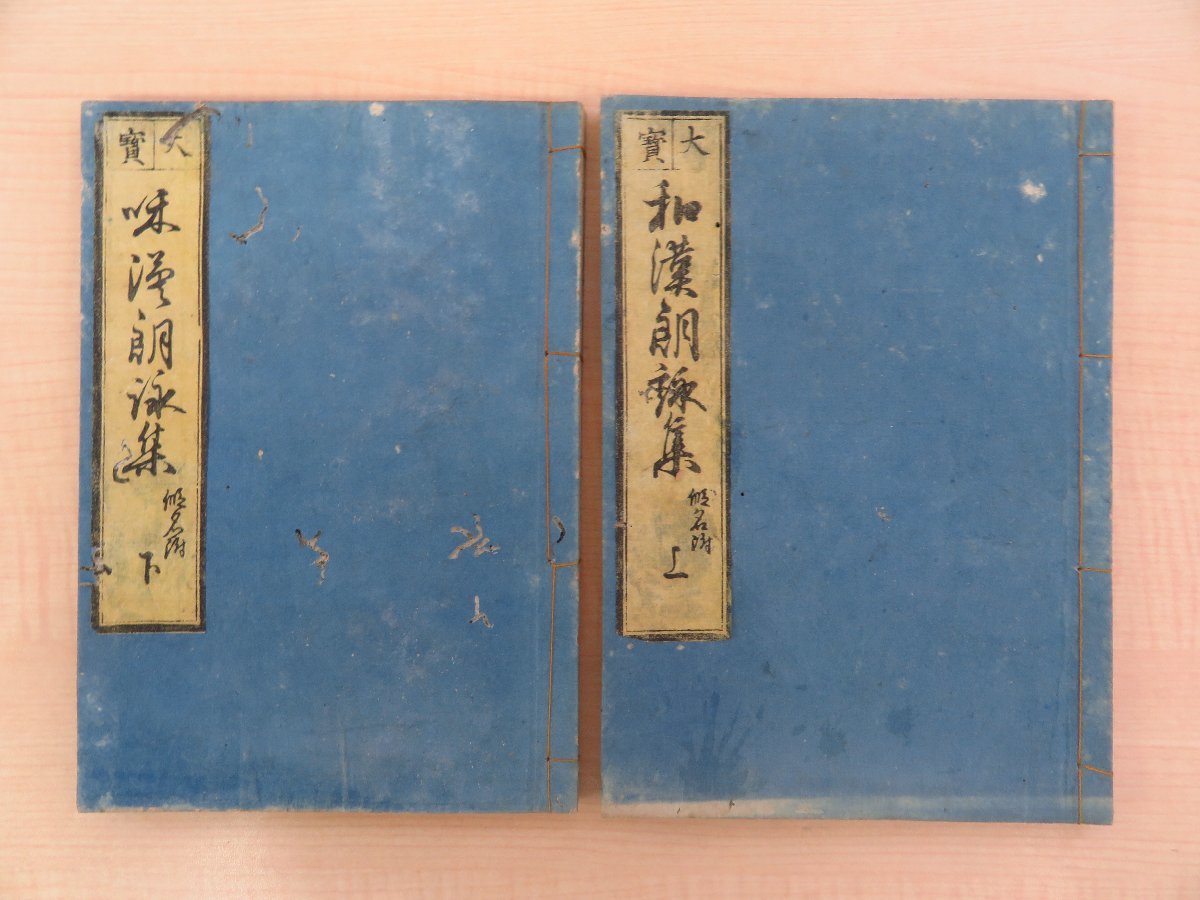 大寶
和漢朗詠集
假名附
上
大寶
咊漢朗詠集
假名附
下